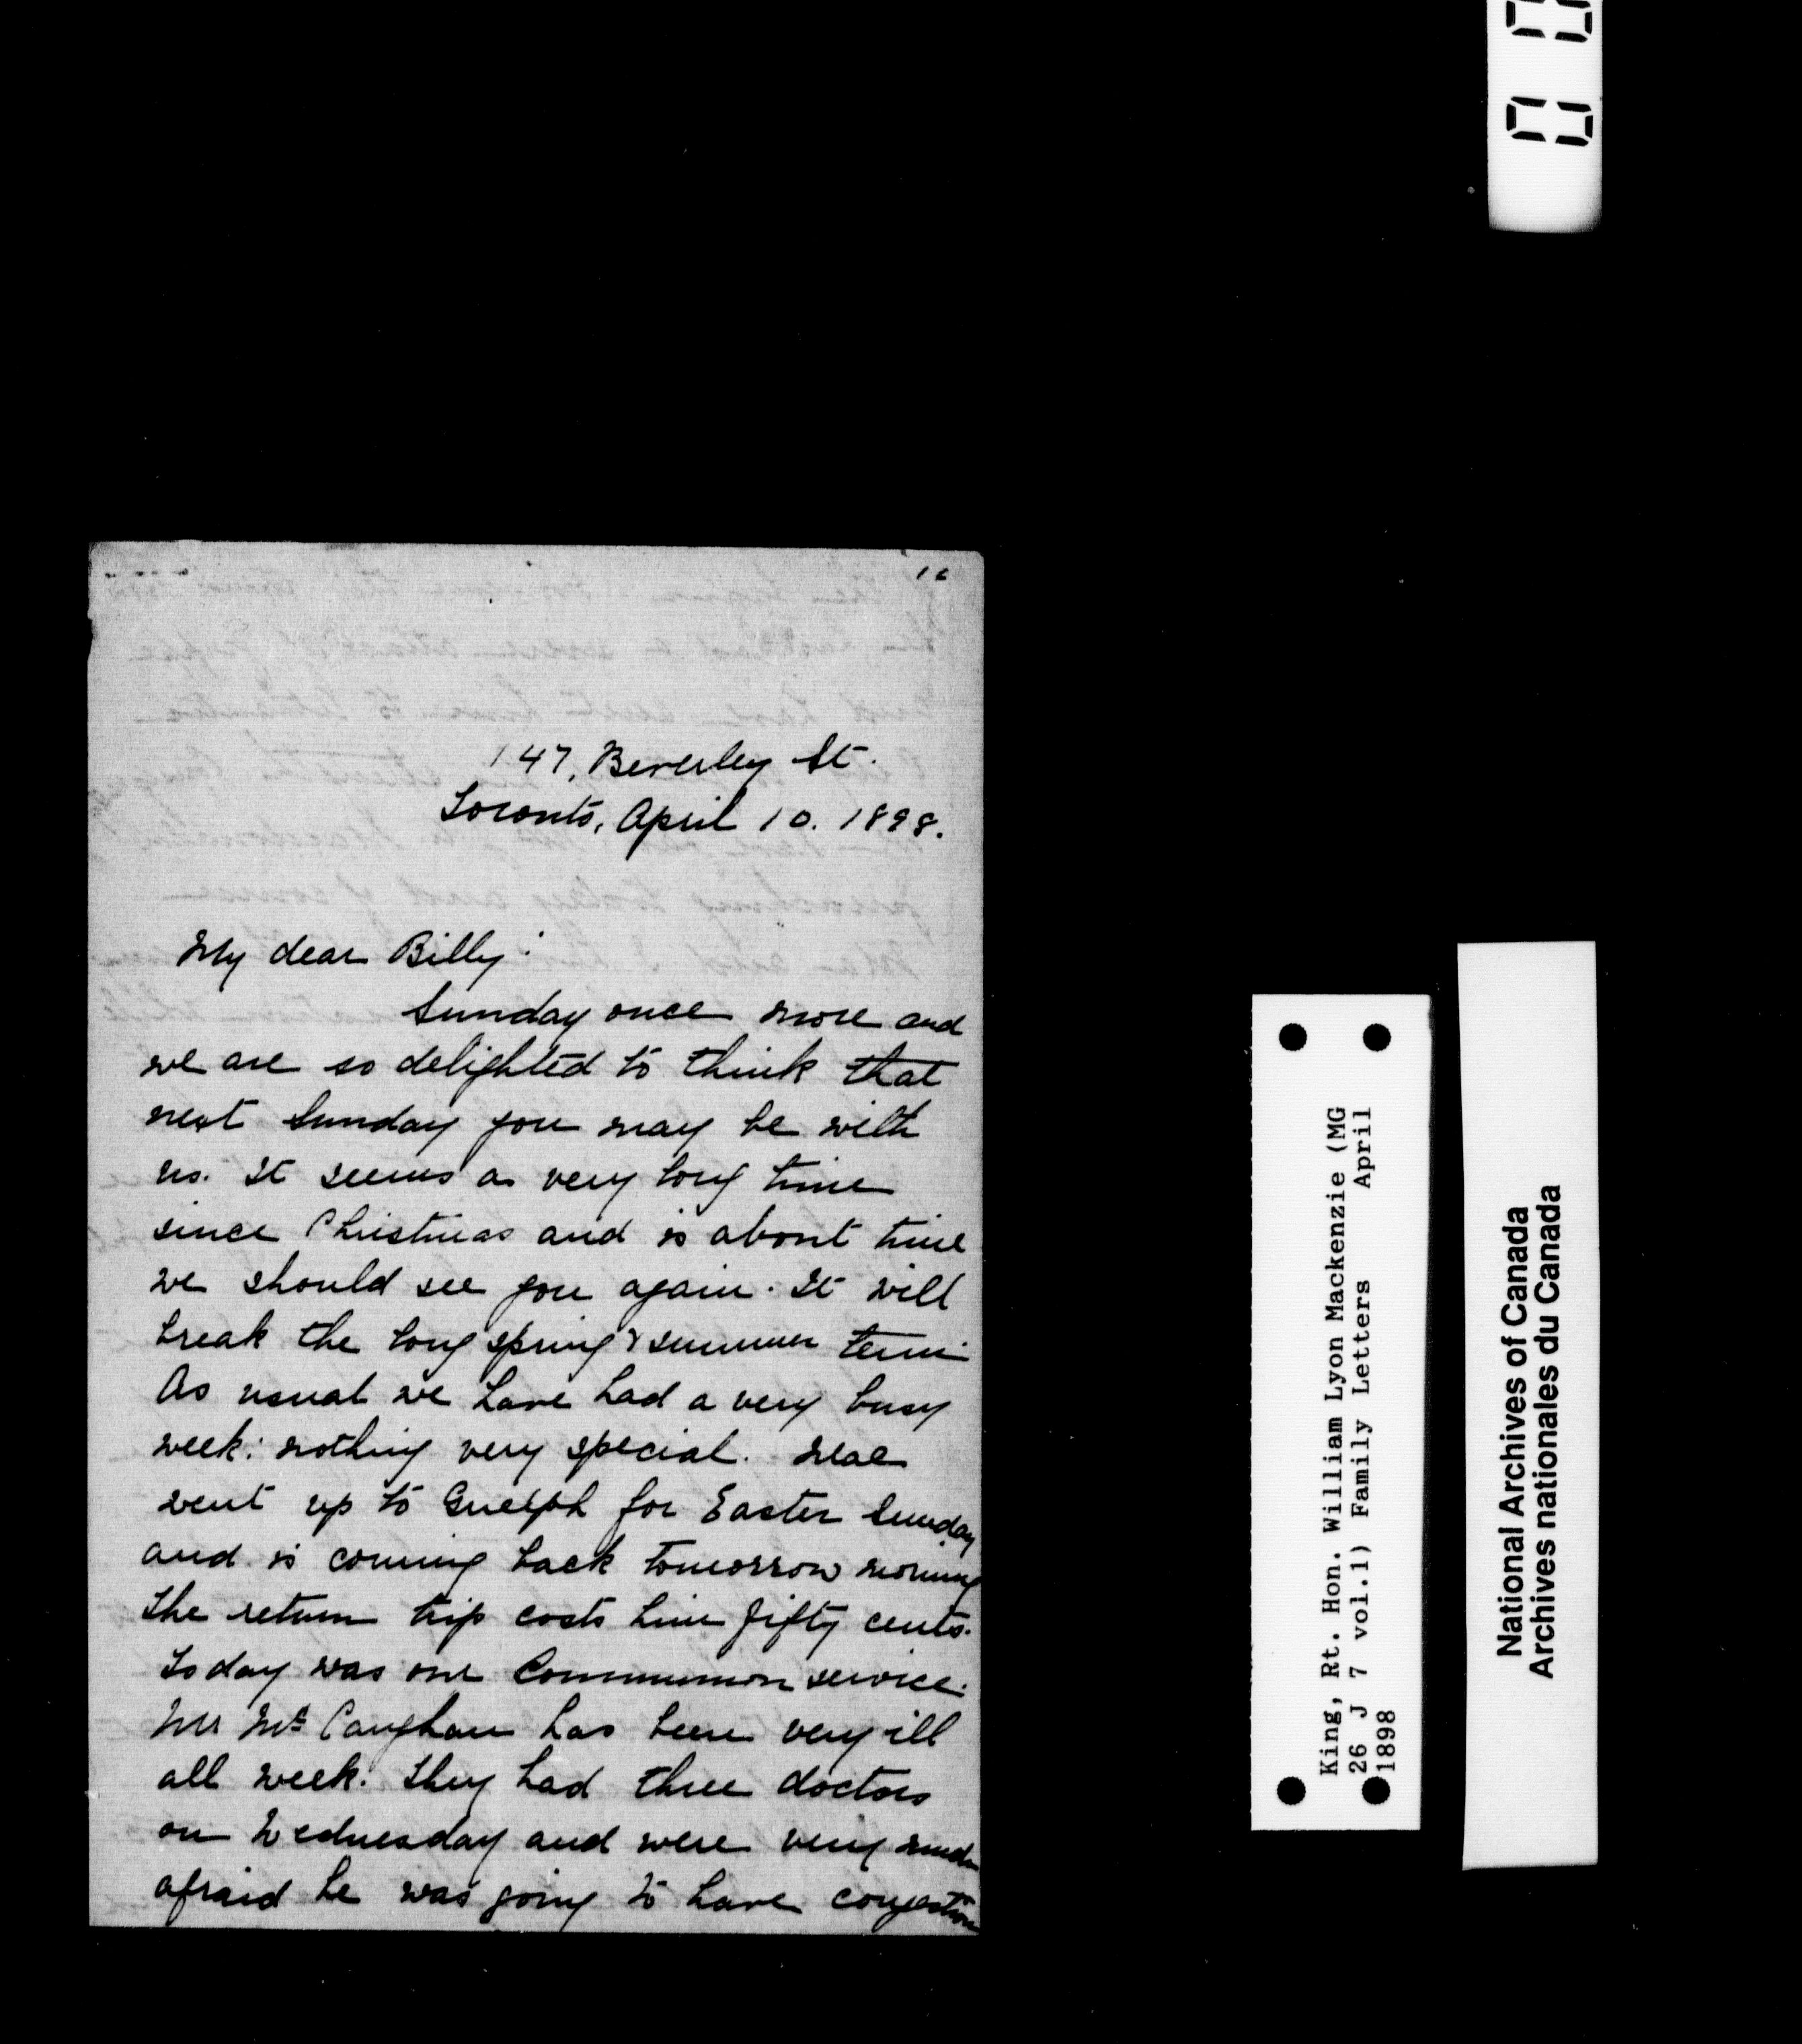 147, Beverley St.
Toronto, April 10. 1898.
My dear Billy:
Sunday once more and
we are so delighted to think that
next Sunday you may be with
us. It seems a very long time
since Christmas and is about time
we should see you again. It will
break the long spring & summer term.
As usual we have had a very busy
week: nothing very special. Mac
went up to Guelph for Easter Sunday
and is coming back tomorrow morning
the return trip costs him fifty cents.
Today was our Communion service.
Mr McCaughan has been very ill
all week. They had three doctors
on Wednesday and were very much
afraid he was going to have congestion
King, Rt. Hon. William Lyon Mackenzie (MG
26 J 7 vol.1) Family Letters April
1898
National Archives of Canada
Archives nationales du Canada